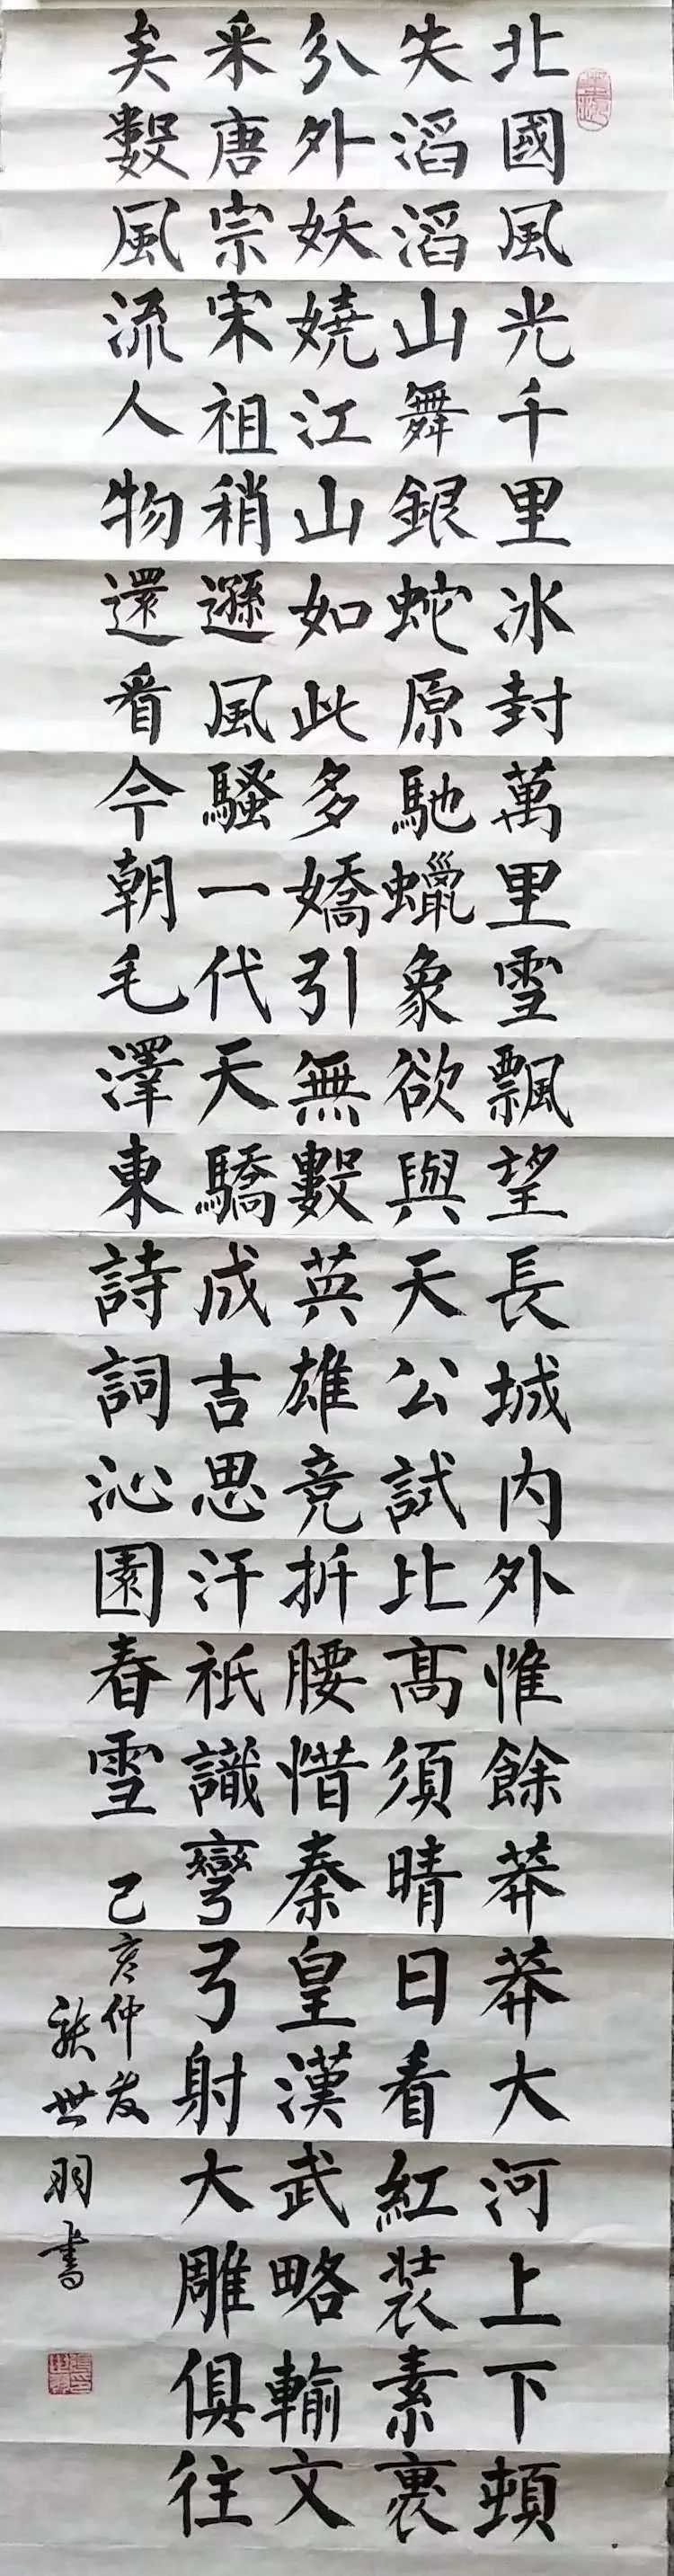 北國風光千里冰封萬里雪飄望長城内外惟餘莽莽大河上下頓
失滔滔山舞銀蛇原馳蠟象欲與天公試比髙須晴日看紅装素裹
分外妖嬈江山如此多嬌引無數英雄竞折腰惜秦皇漢武略輸文
采唐宗宋祖稍遜風騷一代天驕成吉思汗祇識彎弓射大雕俱往
矣數風流人物還看今朝毛澤東詩詞沁園春雪己亥仲
世羽書